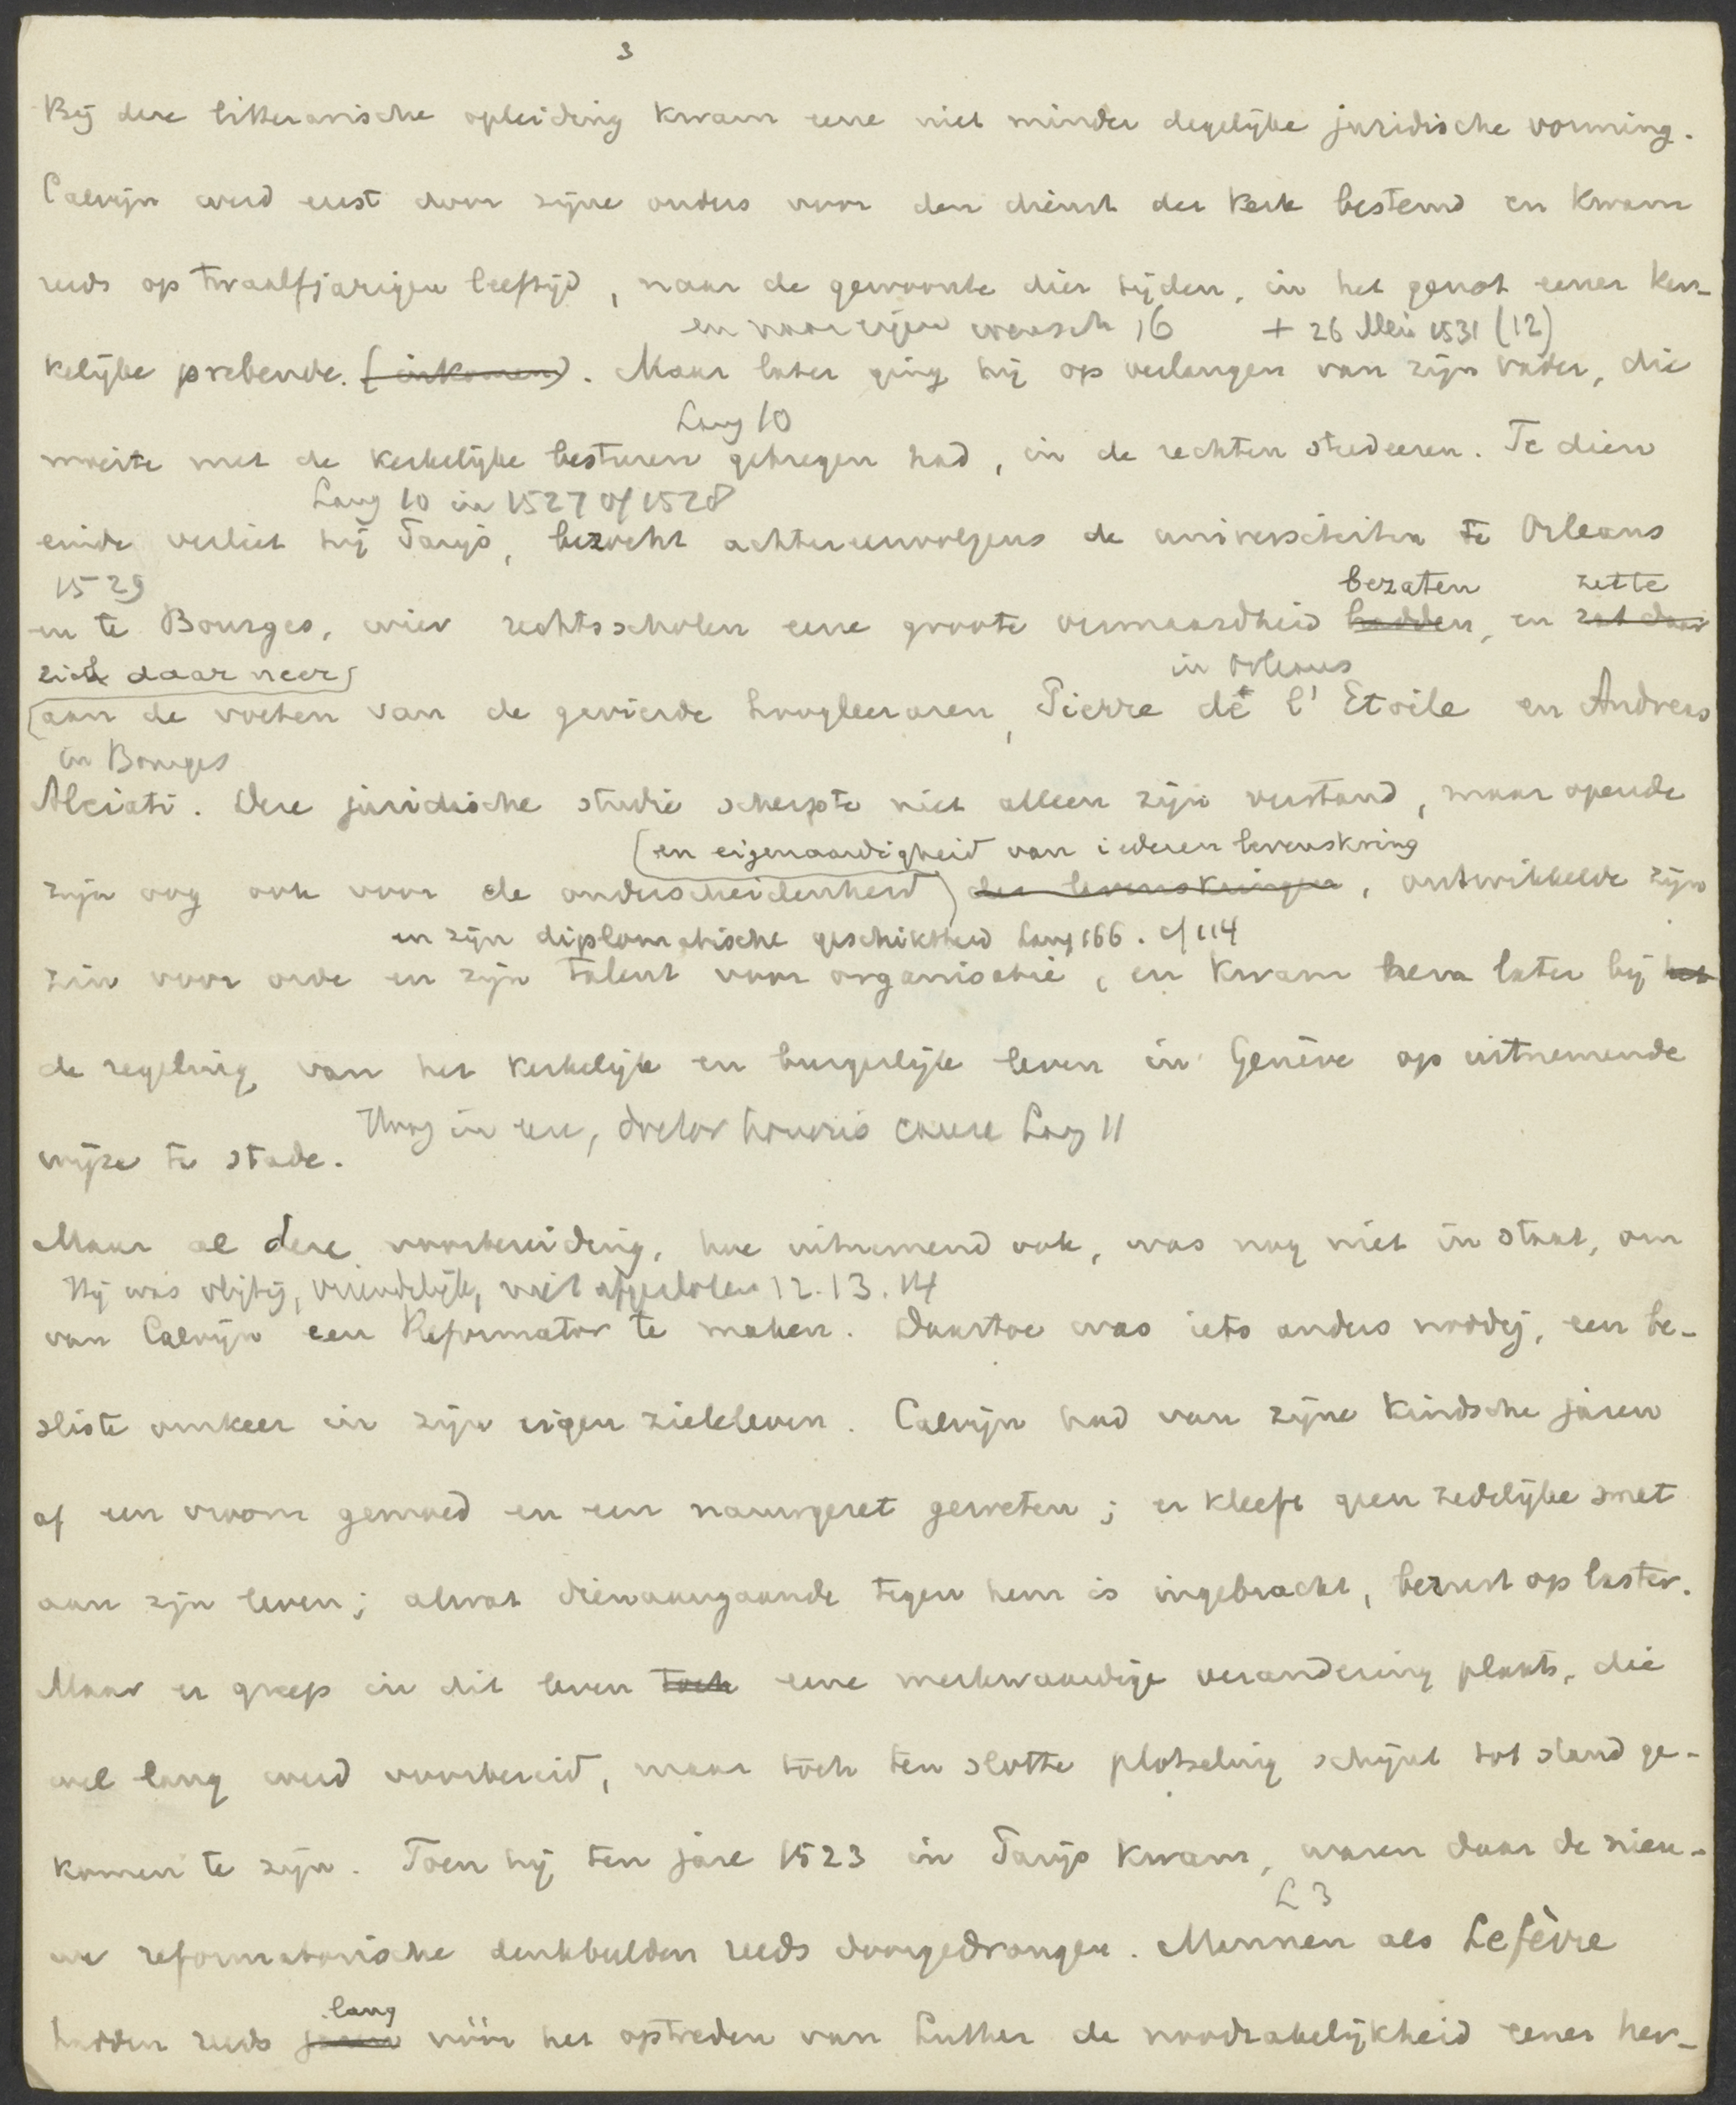 3
Bij deze litterarische opleiding kwam eene niet minder degelijke juridische vorming.
Calvijn werd eerst door zijne ouders voor den dienst der kerk bestemd en kwam
reeds op twaalfjarigen leeftijd, naar de gewoonte dier tijden, in het genot eener ker-
en naar eigen wensch 16 + 26 Mei 1531 (12)
kelijke prebende. (inkomen). Maar later ging hij op verlangen van zijn vader, die
Lang 10
moeite met de kerkelijke besturen gekregen had, in de rechten studeeren. Te dien
Lang 10 in 1527 of 1528
einde verliet hij Parijs, bezocht achtereenvolgens de universiteiten te Orleans
1529 bezaten zette
en te Bourges, wier rechtsscholen eene groote vermaardheid hadden, en zat daar
zich daar neer
in Orleans
aan de voeten van de gevierde hoogleeraren, Pierre de l'Etoile en Andreas
in Bourges
Alciati. Deze juridische studie scherpte niet alleen zijn verstand, maar opende
(en eigenaardigheid van iederen levenskring
zijn oog ook voor de onderscheidenheid) der levenskringen, ontwikkelde zijn
en zijn diplomatische geschiktheid Lang 166. cf 114
zin voor orde en zijn talent voor organisatie, en kwam hem later bij het
de regeling van het kerkelijk en burgerlijk leven in Genève op uitnemende
Hoog in eere, doctor honoris causa Lang 11
wijze te stade.
Maar al deze voorbereiding, hoe uitnemend ook, was nog niet in staat, om
Hij was vlijtig, vriendelijk, niet afgesloten 12.13.14
van Calvijn een Reformator te maken. Daartoe was iets anders noodig, een be-
sliste omkeer in zijn eigen zieleleven. Calvijn had van zijne kindsche jaren
af een vroom gemoed en een nauwgezet geweten; er kleeft geen zedelijke smet
aan zijn leven; alwat dienaangaande tegen hem is ingebracht, berust op laster.
Maar er greep in dit leven toch eene merkwaardige verandering plaats, die
wel lang werd voorbereid, maar toch ten slotte plotseling schijnt tot stand ge-
komen te zijn. Toen hij ten jare 1523 in Parijs kwam, waren daar de nieu-
L 3
we reformatorische denkbeelden reeds doorgedrongen. Mannen als Lefèvre
lang
hadden reeds jaren vóór het optreden van Luther de noodzakelijkheid eener her-